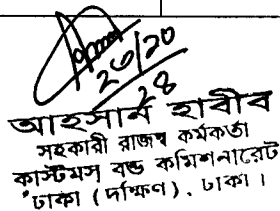 ২৩/১০
২৪
আহসান হাবীব
সহকারী রাজস্ব কর্মকর্তা
কাস্টমস বন্ড কমিশনারেট
ঢাকা (দক্ষিণ), ঢাকা।